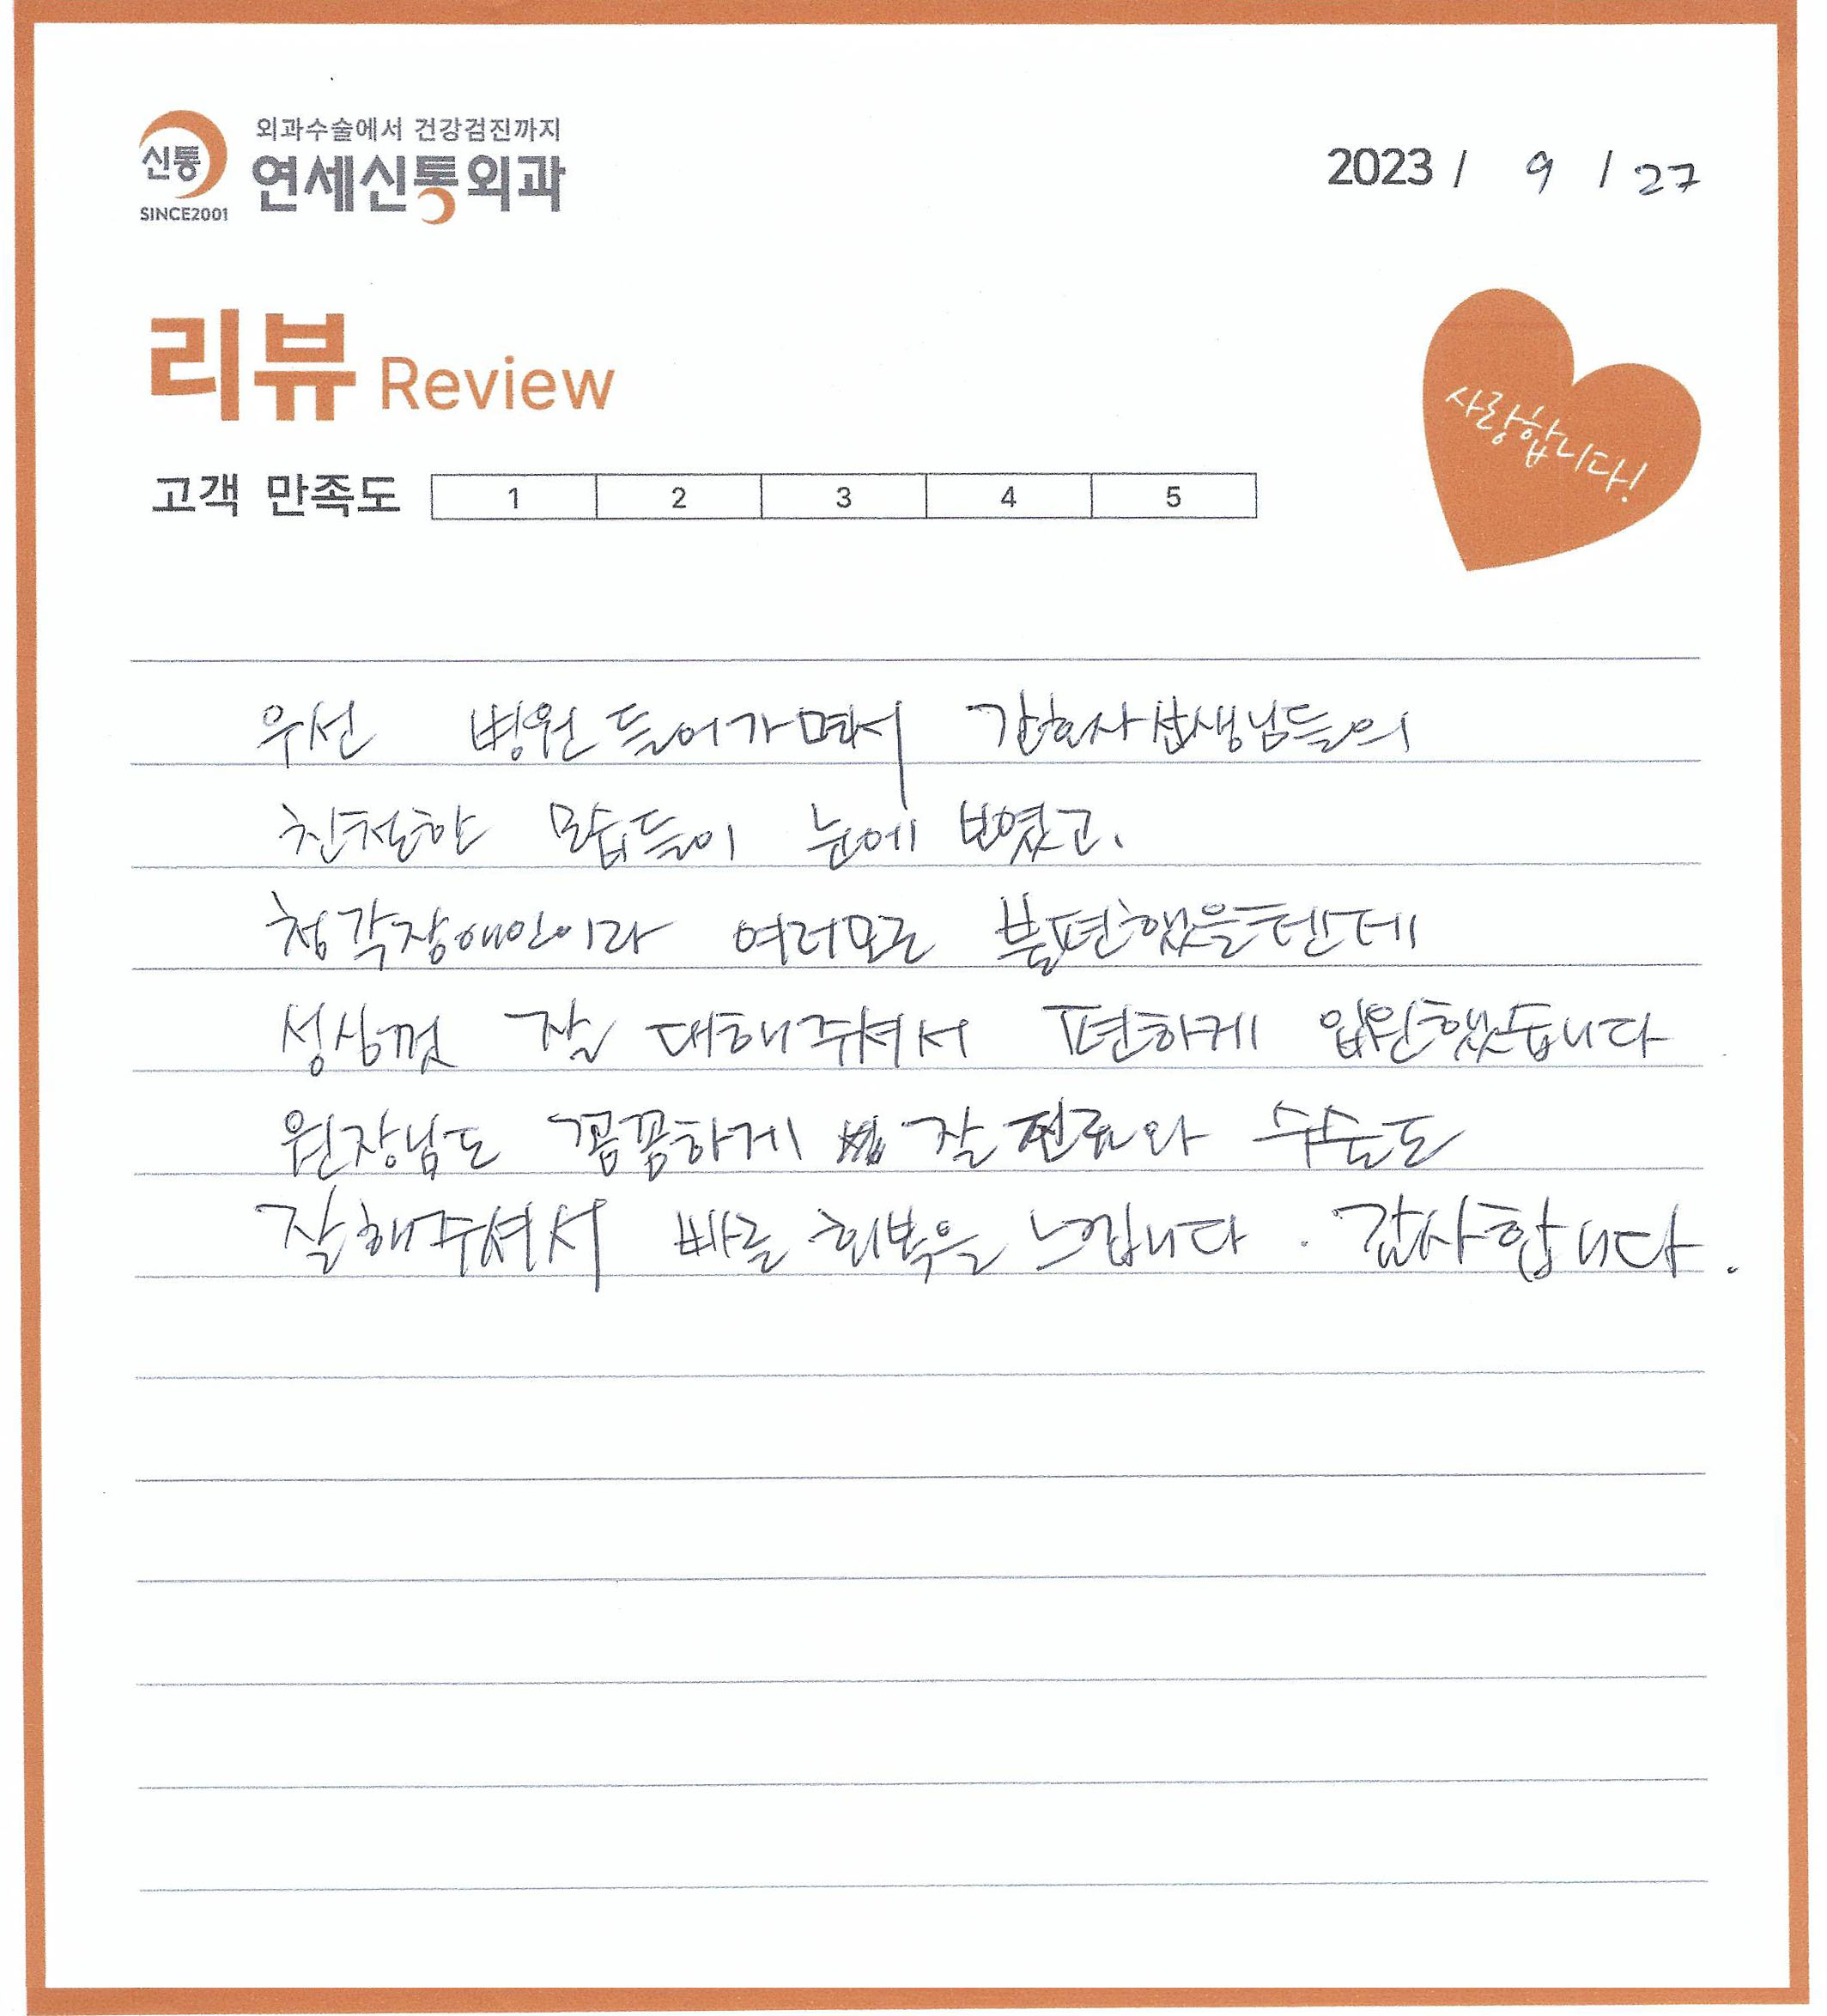 외과수술에서 건강검진까지
신통 연세신통외과
SINCE2001
2023 / 9 / 27
리뷰 Review
사랑합니다!
고객 만족도 1 2 3 4 5
우선 병원 들어가면서 간호사선생님들의
친절한 모습들이 눈에 보였고,
청각장애인이라 여러모로 불편했을텐데
성심껏 잘 대해주셔서 편하게 입원했습니다
원장님도 꼼꼼하게 잘 진료와 수술도
잘해주셔서 빠른 회복을 느낍니다. 감사합니다.